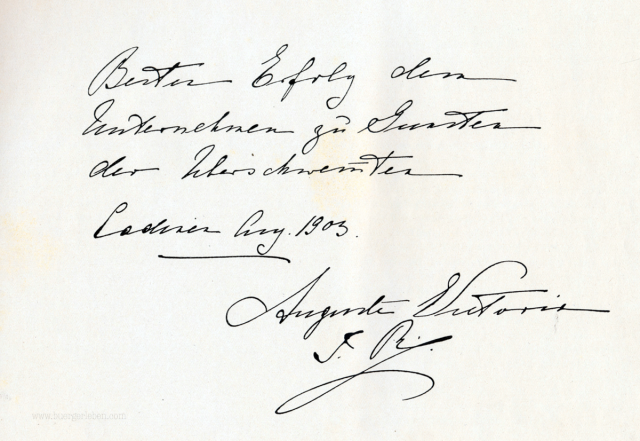 Besten Erfolg dem
Unternehmen zu Gunsten
der Überschwemmten
Cadinen Aug. 1903.
Auguste Victoria
I. R.
www.buergerleben.com